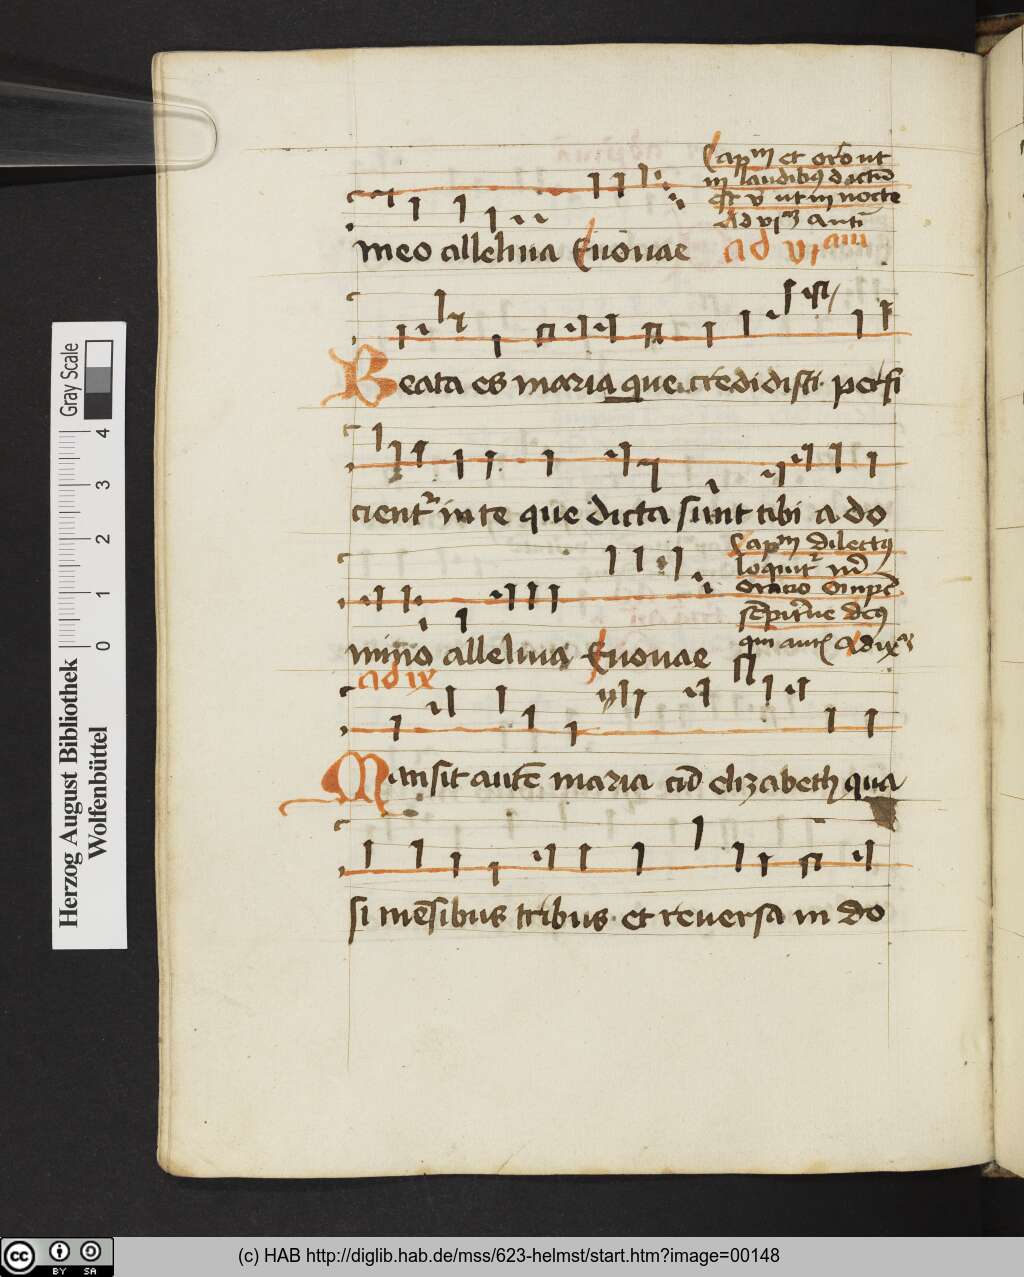 Capm et oro ut
in laudibus dictum
est v ut in nocte
Ad vim anti
meo alleluia Euouae ad vi am
Beata es maria que credidisti perfi
cientr in te que dicta sunt tibi a do
Capm dilectus
loquitr
oratio Omps
sempitrne deus
mino alleluia Euouae
ad ix
Mansit autē maria cū elizabeth qua
si mēsibus tribus et reuersa in do
Herzog August Bibliothek
Wolfenbüttel
Gray Scale
0 1 2 3 4
cc BY SA
(c) HAB http://diglib.hab.de/mss/623-helmst/start.htm?image=00148